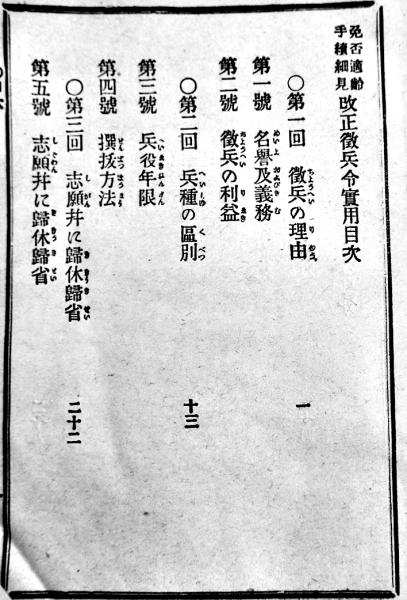 免否適齢
手續細見
改正徴兵令實用目次
〇第一回 徴兵の理由 一
第一號 名譽及義務
第二號 徴兵の利益
〇第二回 兵種の區別 十三
第三號 兵役年限
第四號 撰拔方法
〇第三回 志願并に歸休歸省 二十二
第五號 志願并に歸休歸省